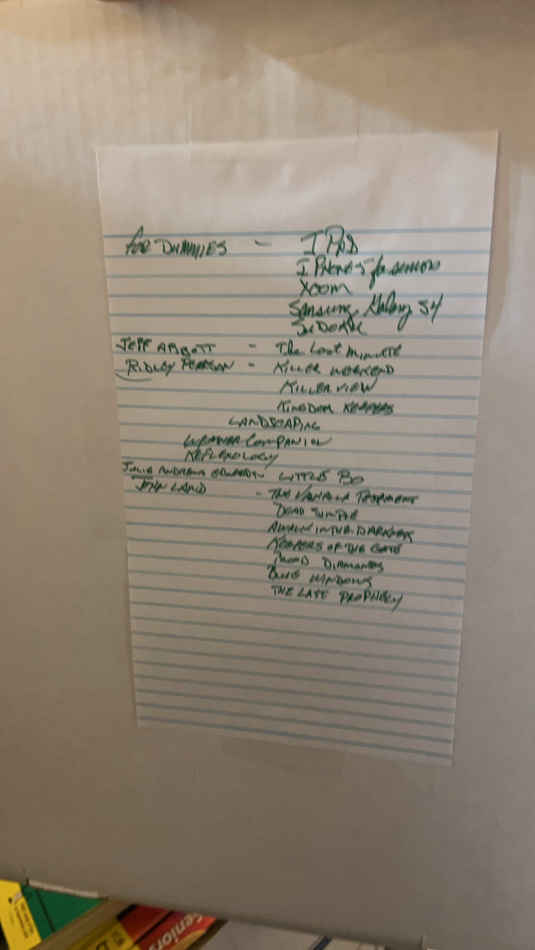 FOR DUMMIES - I PAD
I PHONE 5 for SENIORS
XCOM
Samsung Galaxy S4
SUDOKU
JEFF ABBOTT - The Last Minute
RIDLEY PEARSON - KILLER WEEKEND
KILLER VIEW
KINGDOM KEEPERS
LANDSCAPING
COMPANION
REFLEXOLOGY
JULIE ANDREWS EDWARDS LITTLE BO
JON LAND - THE VALHALLA TESTAMENT
DEAD SIMPLE
A WALK IN THE DARKNESS
KEEPERS OF THE GATE
BLOOD DIAMONDS
BLUE WIDOWS
THE LAST PROPHECY
Seniors